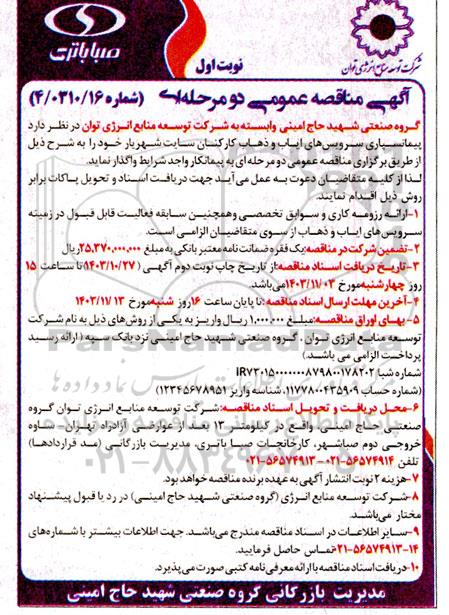 صبا باتری
شرکت توسعه منابع انرژی توان
نوبت اول
آگهی مناقصه عمومی دو مرحله‌ای (شماره ۴/۰۳۱۰/۱۶)
گروه صنعتی شهید حاج امینی وابسته به شرکت توسعه منابع انرژی توان در نظر دارد
پیمانسپاری سرویس‌های ایاب و ذهاب کارکنان سایت شهریار خود را به شرح ذیل
از طریق برگزاری مناقصه عمومی دو مرحله ای به پیمانکار واجد شرایط واگذار نماید.
لذا از کلیه متقاضیان دعوت به عمل می‌آید جهت دریافت اسناد و تحویل پاکات برابر
روش ذیل اقدام نمایند.
۱-ارائه رزومه کاری و سوابق تخصصی وهمچنین سابقه فعالیت قابل قبول در زمینه
سرویس‌های ایاب و ذهاب از سوی متقاضیان الزامی است.
۲-تضمین شرکت در مناقصه:یک فقره ضمانت نامه معتبر بانکی به مبلغ ۲۵,۳۷۰,۰۰۰,۰۰۰ریال
۳-تاریخ دریافت اسناد مناقصه:از تاریخ چاپ نوبت دوم آگهی (۱۴۰۳/۱۰/۲۷) تا ساعت ۱۵
روز چهارشنبه‌مورخ ۱۴۰۳/۱۱/۰۳می‌باشد.
۴-آخرین مهلت ارسال اسناد مناقصه:تا پایان ساعت ۱۶روز شنبه‌مورخ ۱۴۰۳/۱۱/۱۳
۵-بهای اوراق مناقصه:مبلغ ۱,۰۰۰,۰۰۰ ریال واریز به یکی از روش‌های ذیل به نام شرکت
توسعه منابع انرژی توان . گروه صنعتی شهید حاج امینی نزد بانک سپه (ارائه رسید
پرداخت الزامی می باشد.)
شماره شبا
(شماره حساب ۱۱۷۷۸۰۰۴۳۵۹۰۹.شناسه واریز ۱۲۳۴۵۶۷۸۹۵۱)
۶-محل دریافت و تحویل اسناد مناقصه:شرکت توسعه منابع انرژی توان گروه
صنعتی حاج امینی واقع در کیلومتر ۱۳ بعد از عوارضی آزادراه تهران - ساوه
خروجی دوم صباشهر، کارخانجات صبا باتری، مدیریت بازرگانی (مدد قراردادها)
تلفن ۵۶۵۷۴۹۱۴-۰۲۱ ۵۶۵۷۴۹۱۳-۰۲۱
۷-هزینه ۲ نوبت انتشار آگهی به عهده برنده مناقصه خواهد بود.
۸-شرکت توسعه منابع انرژی (گروه صنعتی شهید حاج امینی) در رد یا قبول پیشنهاد
مختار می‌باشد.
۹-سایر اطلاعات در اسناد مناقصه مندرج می‌باشد. جهت اطلاعات بیشتر با شماره‌های
۱۴-۵۶۵۷۴۹۱۳-۰۲۱تماس حاصل فرمایید.
۱۰-دریافت اسناد مناقصه با ارائه معرفی نامه کتبی صورت می‌پذیرد.
مدیریت بازرگانی گروه صنعتی شهید حاج امینی